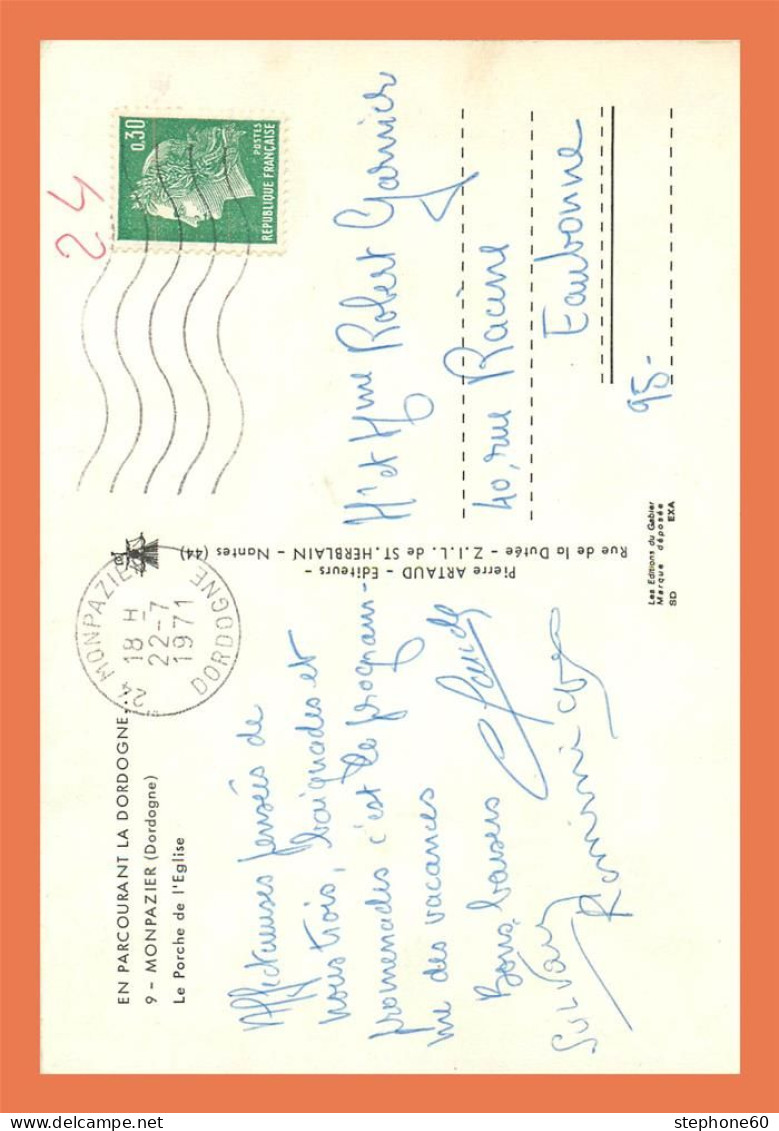 EN PARCOURANT LA DORDOGNE...
9 - MONPAZIER (Dordogne)
Le Porche de l'Eglise
Affectueuses pensées de
nous trois, baignades et
promenades c'est le program-
me des vacances
Bons baisers
Claude
Sylvain
Dominique
24 MONPAZIER
18 H
22-7
1971
DORDOGNE
Pierre ARTAUD - Editeurs -
Rue de la Dutée - Z.I.L. de ST. HERBLAIN - Nantes (44)
Les Editions du Gabier
Marque déposée
SD EXA
24
0,30
POSTES
REPUBLIQUE FRANÇAISE
Mr et Mme Robert Garnier
40, rue Racine
Eaubonne
95-
stephone60